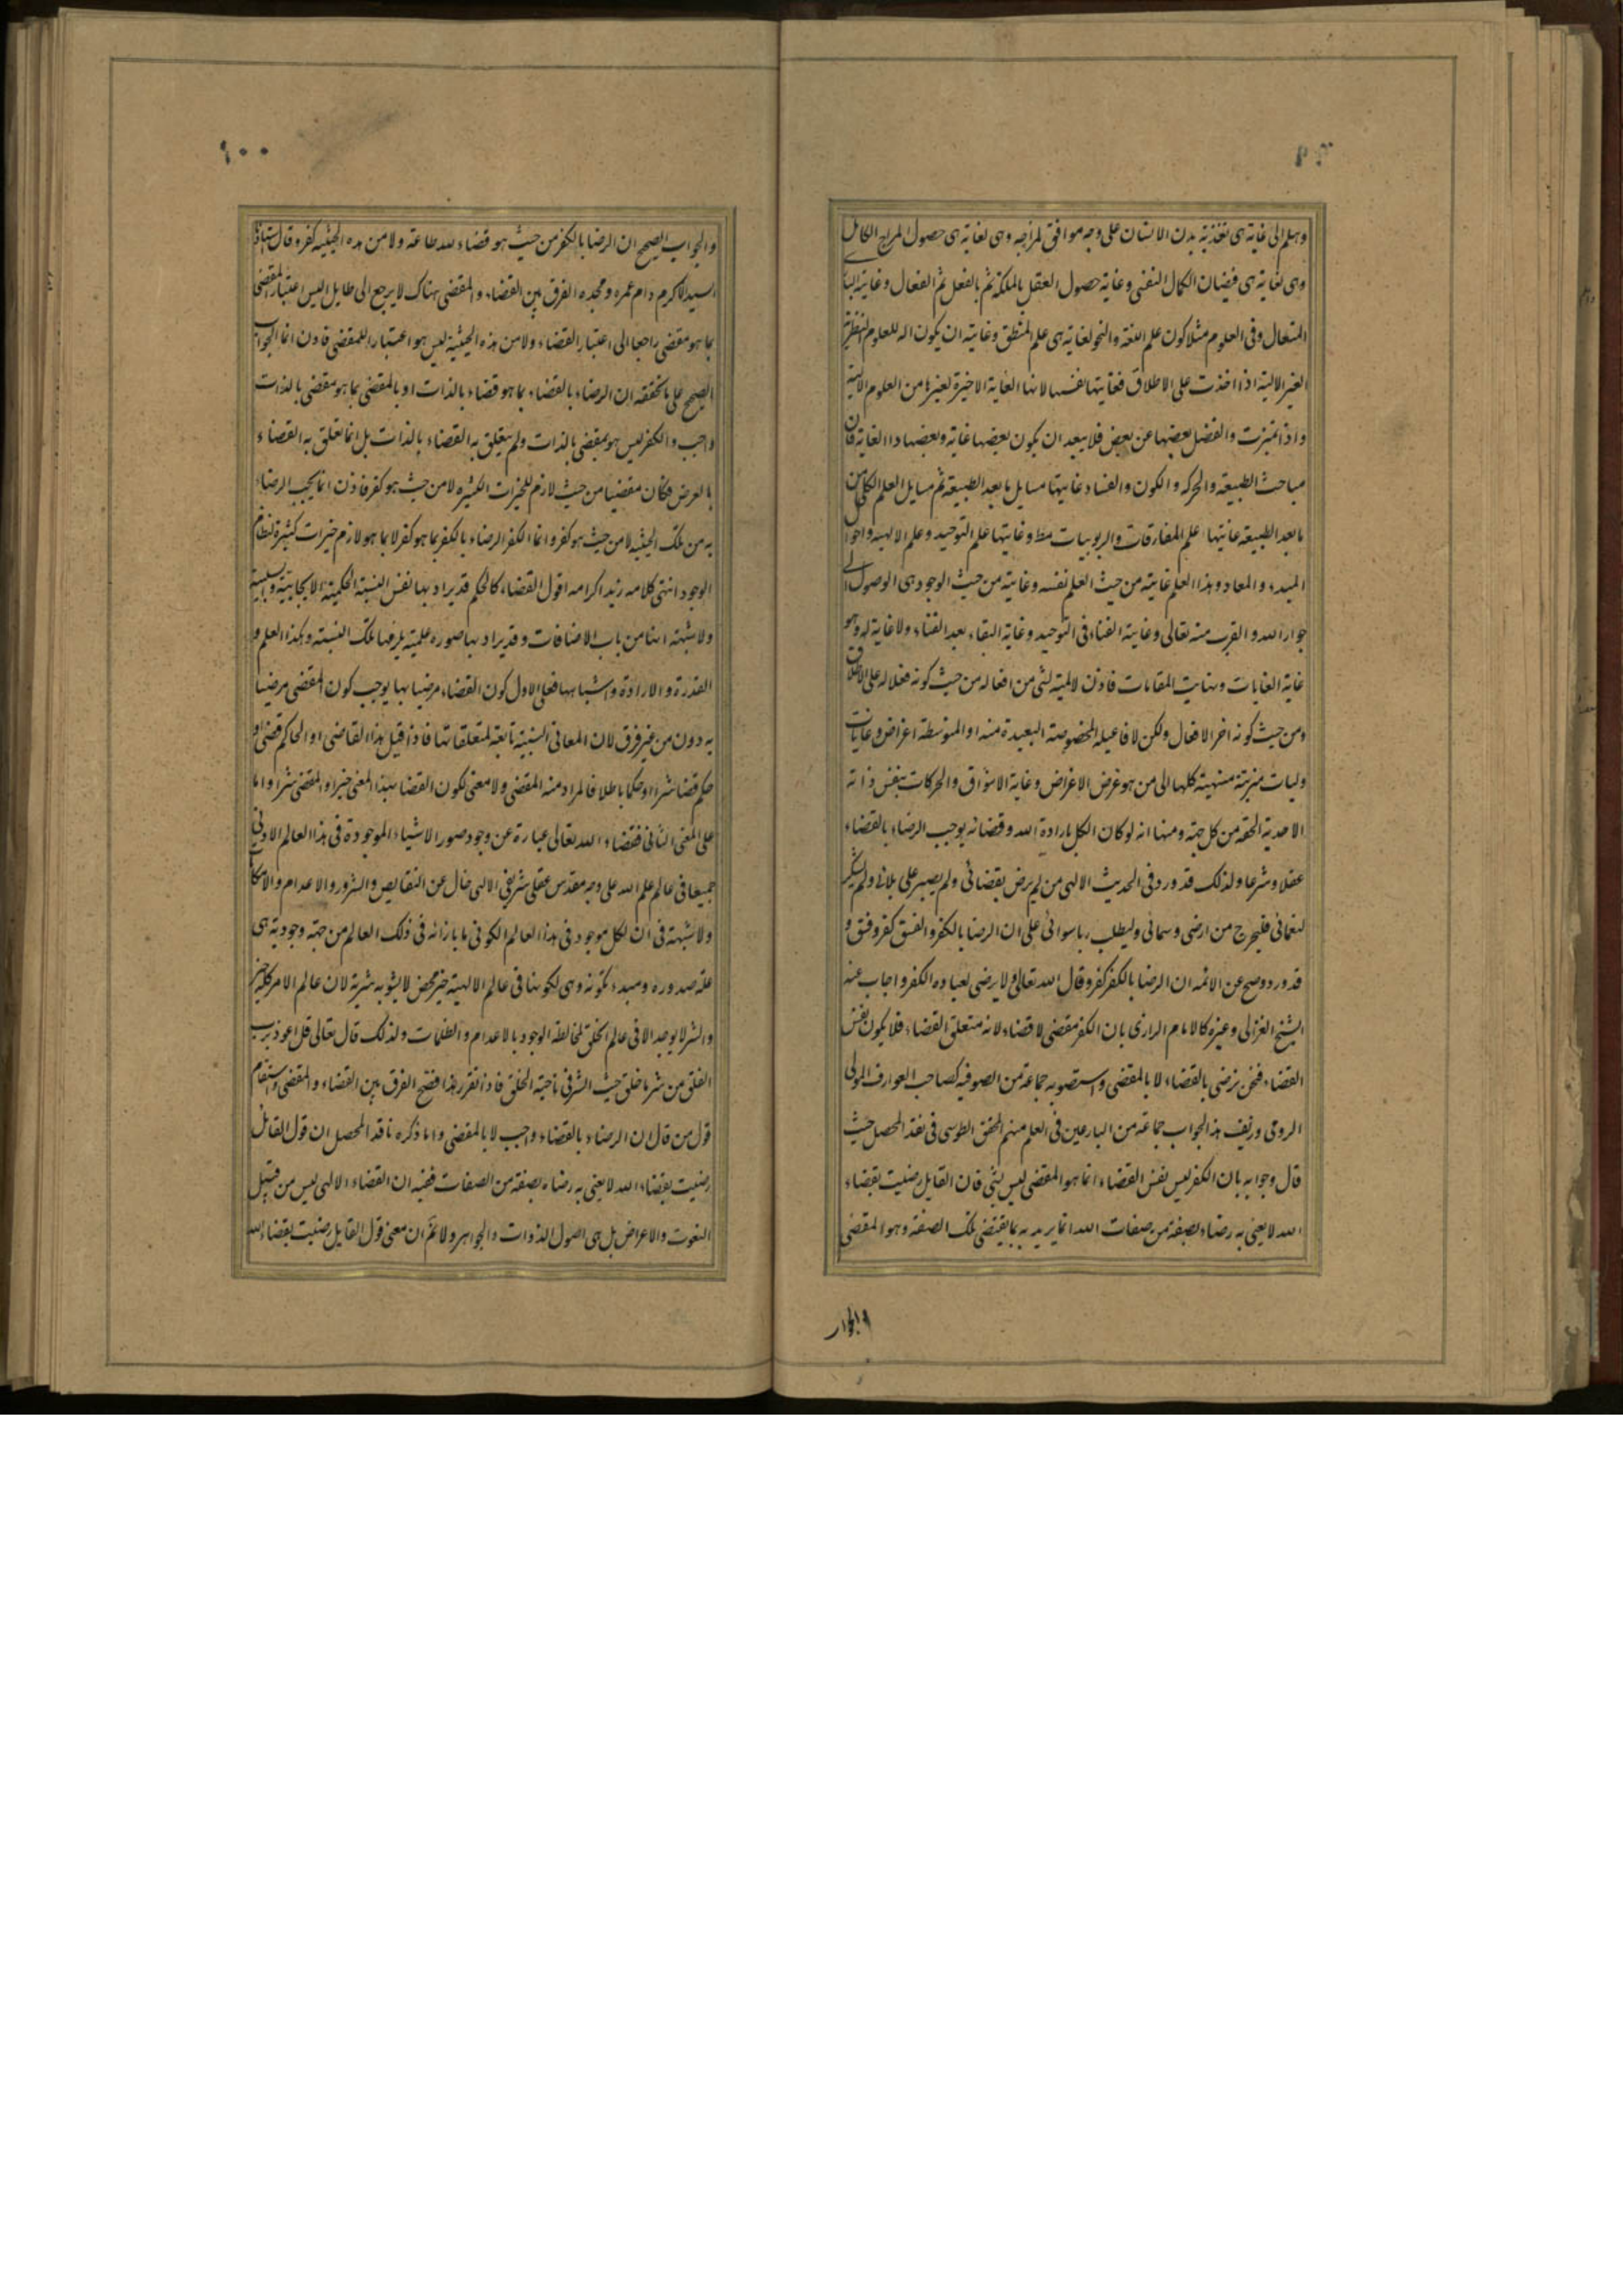 وهلم الى غاية هى تغذية بدن الانسان على وجه موافق لمزاجه وهى لغاية هى حصول المزاج الكامل
وهى لغاية هى فيضان الكمال النفسى وغاية حصول العقل بالملكة ثم بالفعل ثم الفعال وغايته البارى
المتعال وفى العلوم مثلا كون علم اللغة والنحو لغاية هى علم المنطق وغايته ان يكون اله للعلوم النظرية
الغير الالية اذا اخذت على الاطلاق فغايتها نفسها لانها الغاية الاخيرة لغيرها من العلوم الالية
واذا تميزت وانفصل بعضها عن بعض فلا يبعد ان يكون بعضها غاية وبعضها ذا الغاية فان
مباحث الطبيعة والحركه والكون والفساد غايتها مسايل ما بعد الطبيعة ثم مسايل العلم الكلى من
ما بعد الطبيعة غايتها علم المفارقات والربوبيات مط وغايتها علم التوحيد وعلم الالهيه واحوال
المبدء والمعاد وهذا العلم غايته من حيث العلم نفسه وغايته من حيث الوجود هى الوصول الى
جوار الله والقرب منه تعالى وغايته الفناء فى التوحيد وغاية البقاء بعد الفناء ولا غاية له وهو
غاية الغايات ونهايت المقامات فاذن لا لمية لشى من افعاله من حيث كونه فعلا له على الاطلاق
ومن حيث كونه اخر الافعال ولكن لافاعيله المخصوصة البعيدة منه او المتوسطة اغراض وغايات
ولميات مترتبة منتهية كلها الى من هو غرض الاغراض وغاية الاشواق والحركات بنفس ذاته
الاحدية الحقه من كل جهة ومنها انه لو كان الكل بارادة الله وقضائه يوجب الرضاء بالقضاء
عقلا وشرعا ولذلك قد ورد فى الحديث الالهى من لم يرض بقضائى ولم يصبر على بلائى ولم يشكر
لنعمائى فليخرج من ارضى وسمائى وليطلب ربا سوائى على ان الرضا بالكفر والفسق كفر وفسق و
قد ورد وصح عن الائمه ان الرضا بالكفر كفر وقال الله تعالى ولا يرضى لعباده الكفر واجاب عنه
الشيخ الغزالى وغيره كالامام الرازى بان الكفر مقضى لا قضاء لانه متعلق القضاء فلا يكون نفس
القضاء فنحن نرضى بالقضاء لا بالمقضى واستصوبه جماعة من الصوفيه كصاحب العوارف والمولى
الرومى وزيف هذا الجواب جماعة من البارعين فى العلم منهم المحقق الطوسى فى نقد المحصل حيث
قال وجوابه بان الكفر ليس نفس القضاء انما هو المقضى ليس بشى فان القايل رضيت بقضاء
الله لا يعنى به رضاء بصفة من صفات الله انما يريد به بما يقتضى تلك الصفة وهو المقضى
والجواب
والجواب الصحيح ان الرضا بالكفر من حيث هو قضاء لله طاعة ولا من هذه الحيثيه كفر وقال استاذنا
السيد الاكرم دام عمره ومجده الفرق بين القضاء والمقضى هناك لا يرجع الى طايل اليس اعتبار المقضى
بما هو مقضى راجعا الى اعتبار القضاء ولا من هذه الحيثية ليس هو اعتبار للمقضى فاذن انما الجواب
الصحيح على ما تحققه ان الرضاء بالقضاء بما هو قضاء بالذات او بالمقضى بما هو مقضى بالذات
واجب والكفر ليس هو بمقضى بالذات ولم يتعلق به القضاء بالذات بل انما تعلق به القضاء
بالعرض فكان مقضيا من حيث لازم للخيرات الكثيره لا من حيث هو كفر فاذن انما يجب الرضاء
به من تلك الحيثيه لا من حيث هو كفر وانما الكفر الرضاء بالكفر بما هو كفر لا بما هو لازم خيرات كثيرة لنظام
الوجود انتهى كلامه زيد اكرامه اقول القضاء كالحكم قد يراد بها نفس النسبة الحكمية الايجابية والسلبية
ولا شبهة انها من باب الاضافات وقد يراد بها صورة علمية يلزمها تلك النسبة وهكذا العلم و
القدرة والارادة واشباهها فعلى الاول كون القضاء مرضيا بها يوجب كون المقضى مرضيا
به دون من غير فرق لان المعانى النسبية تابعة لمتعلقاتها فاذا قيل هذا القاضى او الحاكم قضى او
حكم قضا شرا او حكما باطلا فالمراد منه المقضى ولا معنى لكون القضا بهذا المعنى خيرا والمقضى شرا واما
على المعنى الثانى فقضاء الله تعالى عبارة عن وجود صور الاشياء الموجودة فى هذا العالم الادنى
جميعا فى عالم علم الله على وجه مقدس عقلى شريفى الالهى خال عن النقايص والشرور والاعدام والامكانات
ولا شبهة فى ان لكل موجود فى هذا العالم الكونى ما بازائه فى ذلك العالم من جهة وجودية هى
علة صدوره ومبدء تكونه وهى لكونها فى عالم الالهية خير محض لا يشوبه شرية لان عالم الامر كله خير
والشر لا يوجد الا فى عالم الخلق لمخالطة الوجود بالاعدام والظلمات ولذلك قال تعالى قل اعوذ برب
الفلق من شر ما خلق حيث الشر فى ناحية الخلق فاذا تقرر هذا فتضح الفرق بين القضاء والمقضى واستقام
قول من قال ان الرضاء بالقضاء واجب لا بالمقضى واما ذكره ناقد المحصل ان قول القائل
رضيت بقضاء الله لا يعنى به رضاه بصفة من الصفات ففيه ان القضاء الالهى ليس من قبيل
النعوت والاعراض بل هى اصول الذوات والجواهر ولا نم ان معنى قول القايل رضيت بقضاء الله